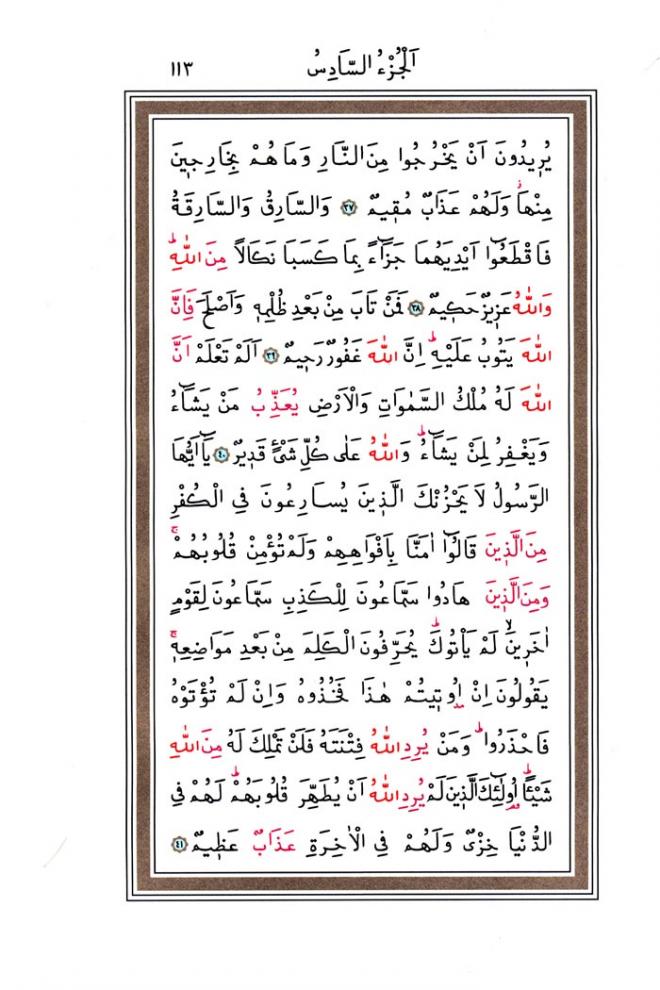 اَلْجُزْءُ السَّادِسُ ١١٣
يُرِيدُونَ اَنْ يَخْرُجُوا مِنَ النَّارِ وَمَا هُمْ بِخَارِجِينَ
مِنْهَاۘ وَلَهُمْ عَذَابٌ مُقِيمٌ ﴿٣٧﴾ وَالسَّارِقُ وَالسَّارِقَةُ
فَاقْطَعُٓوا اَيْدِيَهُمَا جَزَٓاءً بِمَا كَسَبَا نَكَالًا مِنَ اللّٰهِۜ
وَاللّٰهُ عَزِيزٌ حَكِيمٌ ﴿٣٨﴾ فَمَنْ تَابَ مِنْ بَعْدِ ظُلْمِهِ وَاَصْلَحَ فَاِنَّ
اللّٰهَ يَتُوبُ عَلَيْهِۜ اِنَّ اللّٰهَ غَفُورٌ رَحِيمٌ ﴿٣٩﴾ اَلَمْ تَعْلَمْ اَنَّ
اللّٰهَ لَهُ مُلْكُ السَّمٰوَاتِ وَالْاَرْضِ يُعَذِّبُ مَنْ يَشَٓاءُ
وَيَغْفِرُ لِمَنْ يَشَٓاءُۜ وَاللّٰهُ عَلٰى كُلِّ شَيْءٍ قَدِيرٌ ﴿٤٠﴾ يَٓا اَيُّهَا
الرَّسُولُ لَا يَحْزُنْكَ الَّذِينَ يُسَارِعُونَ فِي الْكُفْرِ
مِنَ الَّذِينَ قَالُٓوا اٰمَنَّا بِاَفْوَاهِهِمْ وَلَمْ تُؤْمِنْ قُلُوبُهُمْۚ
وَمِنَ الَّذِينَ هَادُوا سَمَّاعُونَ لِلْكَذِبِ سَمَّاعُونَ لِقَوْمٍ
اٰخَرِينَۙ لَمْ يَأْتُوكَۜ يُحَرِّفُونَ الْكَلِمَ مِنْ بَعْدِ مَوَاضِعِهِۚ
يَقُولُونَ اِنْ اُو۫تِيتُمْ هٰذَا فَخُذُوهُ وَاِنْ لَمْ تُؤْتَوْهُ
فَاحْذَرُواۜ وَمَنْ يُرِدِ اللّٰهُ فِتْنَتَهُ فَلَنْ تَمْلِكَ لَهُ مِنَ اللّٰهِ
شَيْـًٔاۜ اُو۬لٰٓئِكَ الَّذِينَ لَمْ يُرِدِ اللّٰهُ اَنْ يُطَهِّرَ قُلُوبَهُمْۜ لَهُمْ فِي
الدُّنْيَا خِزْيٌ وَلَهُمْ فِي الْاٰخِرَةِ عَذَابٌ عَظِيمٌ ﴿٤١﴾